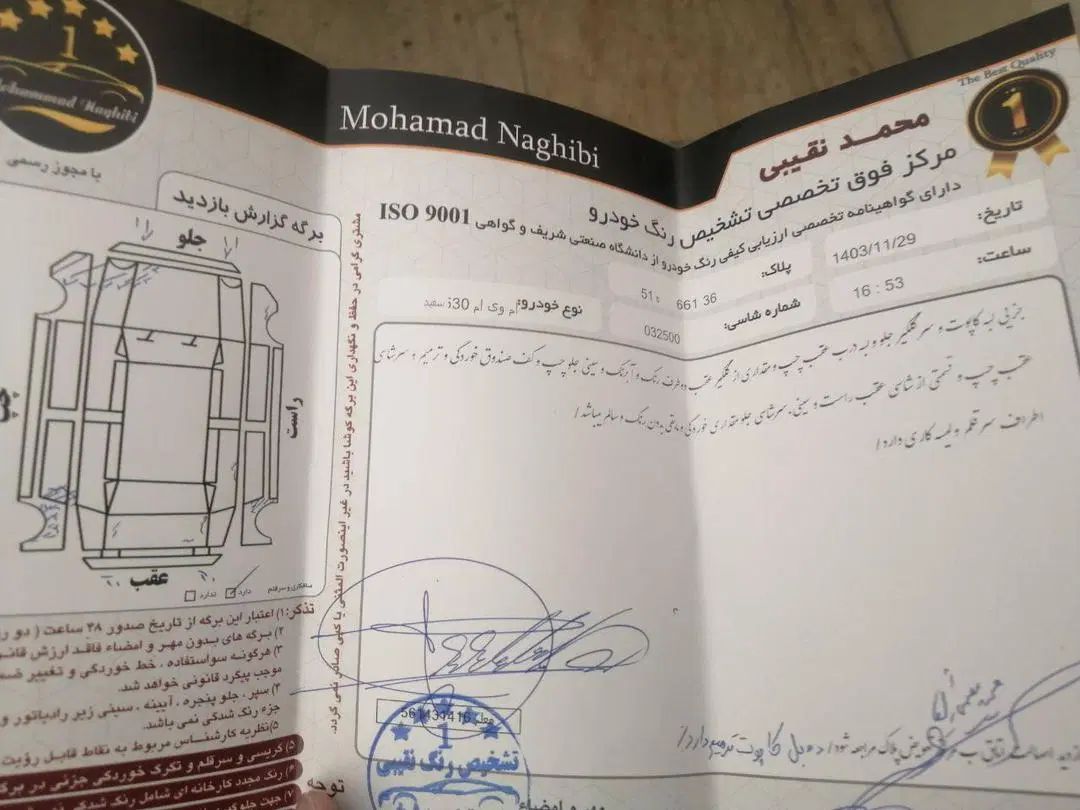 1
Mohammad Naghibi
با مجوز رسمی
Mohamad Naghibi
The Best Quality
1
محمد نقیبی
مرکز فوق تخصصی تشخیص رنگ خودرو
دارای گواهینامه تخصصی ارزیابی کیفی رنگ خودرو از دانشگاه صنعتی شریف و گواهی ISO 9001
تاریخ: 1403/11/29
ساعت: 16 : 53
پلاک: 661 36 51
شماره شاسی: 032500
نوع خودرو: ام وی ام 530 سفید
جزئی لبه کاپوت و سر گلگیر جلو و لبه درب عقب چپ و مقداری از گلگیر عقب دو طرف رنگ و آبرنگ و سینی جلو چپ و کف صندوق خوردگی و ترمیم و سرشاسی
عقب چپ و قسمتی از شاسی عقب راست و سینی، سرشاسی جلو مقداری خوردگی و مابقی بدون رنگ و سالم میباشد/
اطراف سر قلم و لیسه کاری دارد/
برگه گزارش بازدید
جلو
راست
چپ
عقب
صافکاری و سرقلم دارد ندارد
مشتری گرامی در حفظ و نگهداری این برگه کوشا باشید در غیر اینصورت المثنی یا کپی صادر نمی گردد.
تذکر: ۱) اعتبار این برگه از تاریخ صدور ۴۸ ساعت ( دو
۲) برگه های بدون مهر و امضاء فاقد ارزش
۳) هرگونه سواستفاده ، خط خوردگی و تغییر
موجب پیگرد قانونی خواهد شد.
۴) سپر ، جلو پنجره ، آیینه ، سینی زیر رادیاتور و
جزء رنگ شدگی نمی باشد.
۵) نظریه کارشناس مربوط به نقاط قابل رؤیت
۵) گریسی و سرقلم و تگرگ خوردگی جزئی در
۶) رنگ مجدد کارخانه ای شامل رنگ شدگی
۷) جهت
توجه
561431416
1
تشخیص رنگ نقیبی
تعویض پلاک مراجعه شود/ دوبل کاپوت ترمیم دارد/
مهر و امضاء